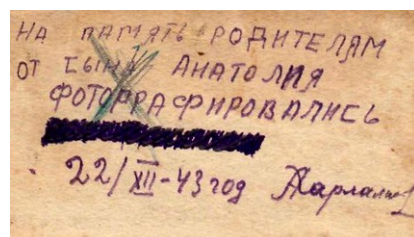 НА ПАМЯТЬ РОДИТЕЛЯМ
ОТ СЫНА АНАТОЛИЯ
ФОТОГРАФИРОВАЛИСЬ
22/XII-43 год